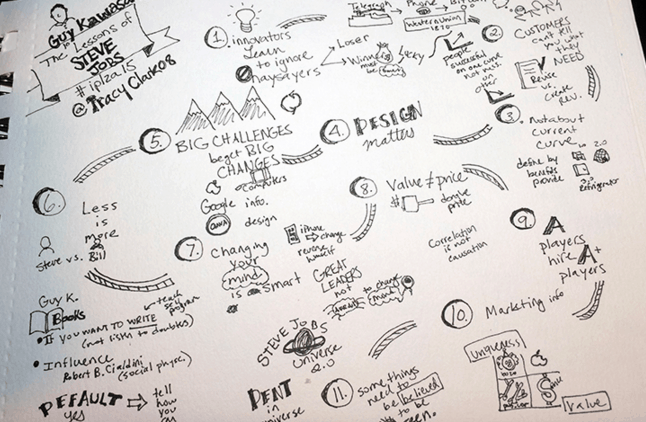 Guy Kawasaki
The 10 Lessons of
STEVE
JOBS
#iplza15
@TracyClark08
1. innovators
Learn
to ignore
naysayers
Loser
Winner
must
be
Lucky
Telegraph → Phone →
Western Union
1870
people
successful
on one curve
not
on
other
2.
CUSTOMERS
can't tell
you what
they
NEED
Revise
vs.
create
Rev.
3. Not about
current
curve
define by
benefits
provide
2.0
Refrigerator
4. DESIGN
matters
5.
BIG CHALLENGES
beget BIG
CHANGES
computers
Google info.
design
6.
Less
is
more
Steve vs. Bill
7. Changing
your
mind
is smart
iPhone
change
reverse
himself
GREAT
LEADERS
not
to change
mind
8. Value ≠ price
donble
price
Correlation
is not
causation
9. A
players
hire A+
players
10. Marketing info
Uniqueness
Value
Guy K.
Books
teach
self
program
• IF YOU WANT TO WRITE
(not listen to doubters)
• Influence
Robert B. Cialdini
(social physc.)
DEFAULT
yes
tell
how
you
can
STEVE JOBS
Universe
2.0
DENT
in
universe
11. some things
need to
be believed
to be
seen.